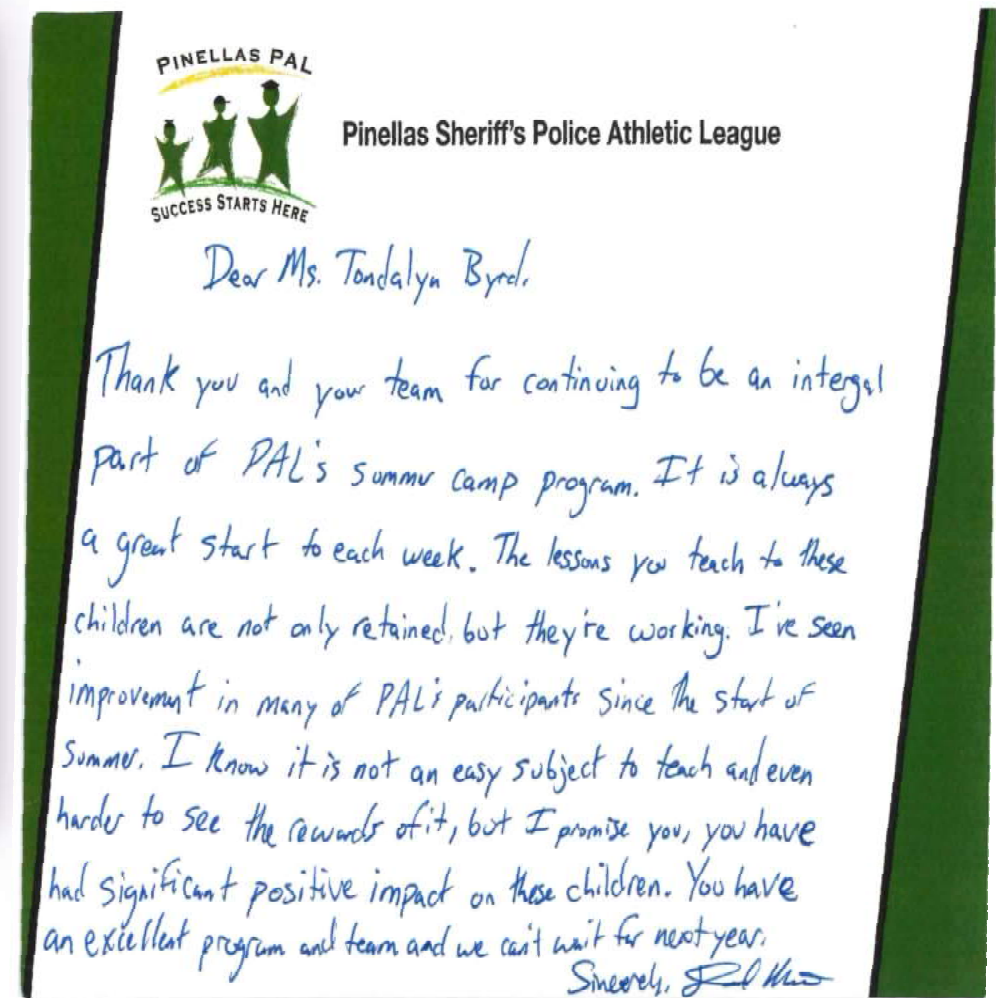 PINELLAS PAL
SUCCESS STARTS HERE
Pinellas Sheriff's Police Athletic League
Dear Ms. Tondalyn Byrd.
Thank you and your team for continuing to be an intergal
part of PAL's summer camp program. It is always
a great start to each week. The lessons you teach to these
children are not only retained, but they're working. I've seen
improvement in many of PAL's participants since the start of
summer. I know it is not an easy subject to teach and even
harder to see the rewards of it, but I promise you, you have
had significant positive impact on these children. You have
an excellent program and team and we can't wait for next year.
Sincerely,